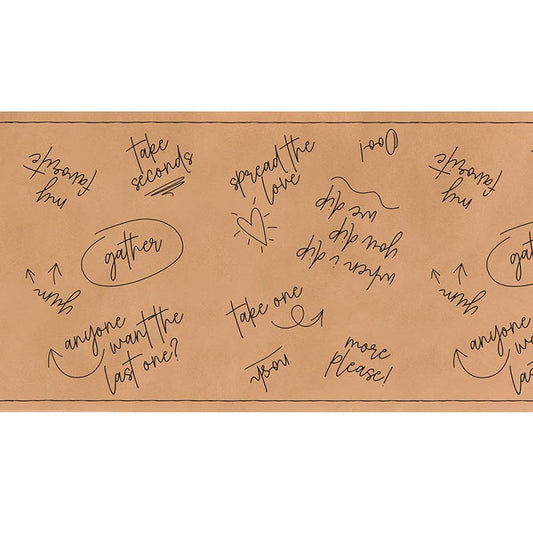 my
favorite
take
seconds
spread the
love
Ooo!
my
favorite
when i dip
you dip
we dip
gather
gat
yum
yum
take one
anyone
want the
last one?
nosh
more
please!
anyone